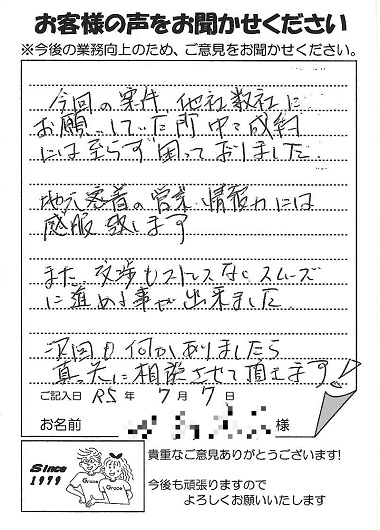 お客様の声をお聞かせください
※今後の業務向上のため、ご意見をお聞かせください。
今回の案件、他社数社に
お願いしていた所 中々成約
には至らず困っておりました。
地元密着の営業・情報力には
感服致します
また、交渉もストレスなくスムーズ
に進める事が出来ました
次回も何かありましたら
真っ先に相談させて頂きます!
ご記入日 R5 年 7 月 7 日
お名前 様
Since
1979
Grace
Grace
貴重なご意見ありがとうございます!
今後も頑張りますので
よろしくお願いいたします